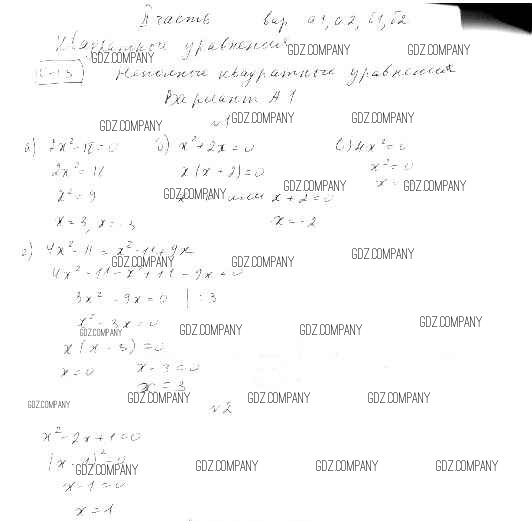 II часть вар. А1, А2, Б1, Б2
Квадратные уравнения
GDZ.COMPANY GDZ.COMPANY GDZ.COMPANY
Неполные квадратные уравнения
Вариант А1
GDZ.COMPANY №1 GDZ.COMPANY GDZ.COMPANY
а) 2x²-18=0 б) x²+2x=0 в) 4x²=0
2x²=18 x(x+2)=0 x²=0
GDZ.COMPANY GDZ.COMPANY GDZ.COMPANY
x²=9 или x+2=0
x=3, x=-3 x=-2
г) 4x²-11=x²-11+9x
GDZ.COMPANY GDZ.COMPANY GDZ.COMPANY
4x²-11-x²+11-9x=0
3x²-9x=0 |:3
x²-3x=0
GDZ.COMPANY GDZ.COMPANY GDZ.COMPANY GDZ.COMPANY
x(x-3)=0
x=0 x-3=0
x=3
GDZ.COMPANY GDZ.COMPANY GDZ.COMPANY GDZ.COMPANY
№2
x²-2x+1=0
(x-1)²=0
GDZ.COMPANY GDZ.COMPANY GDZ.COMPANY GDZ.COMPANY
x-1=0
x=1